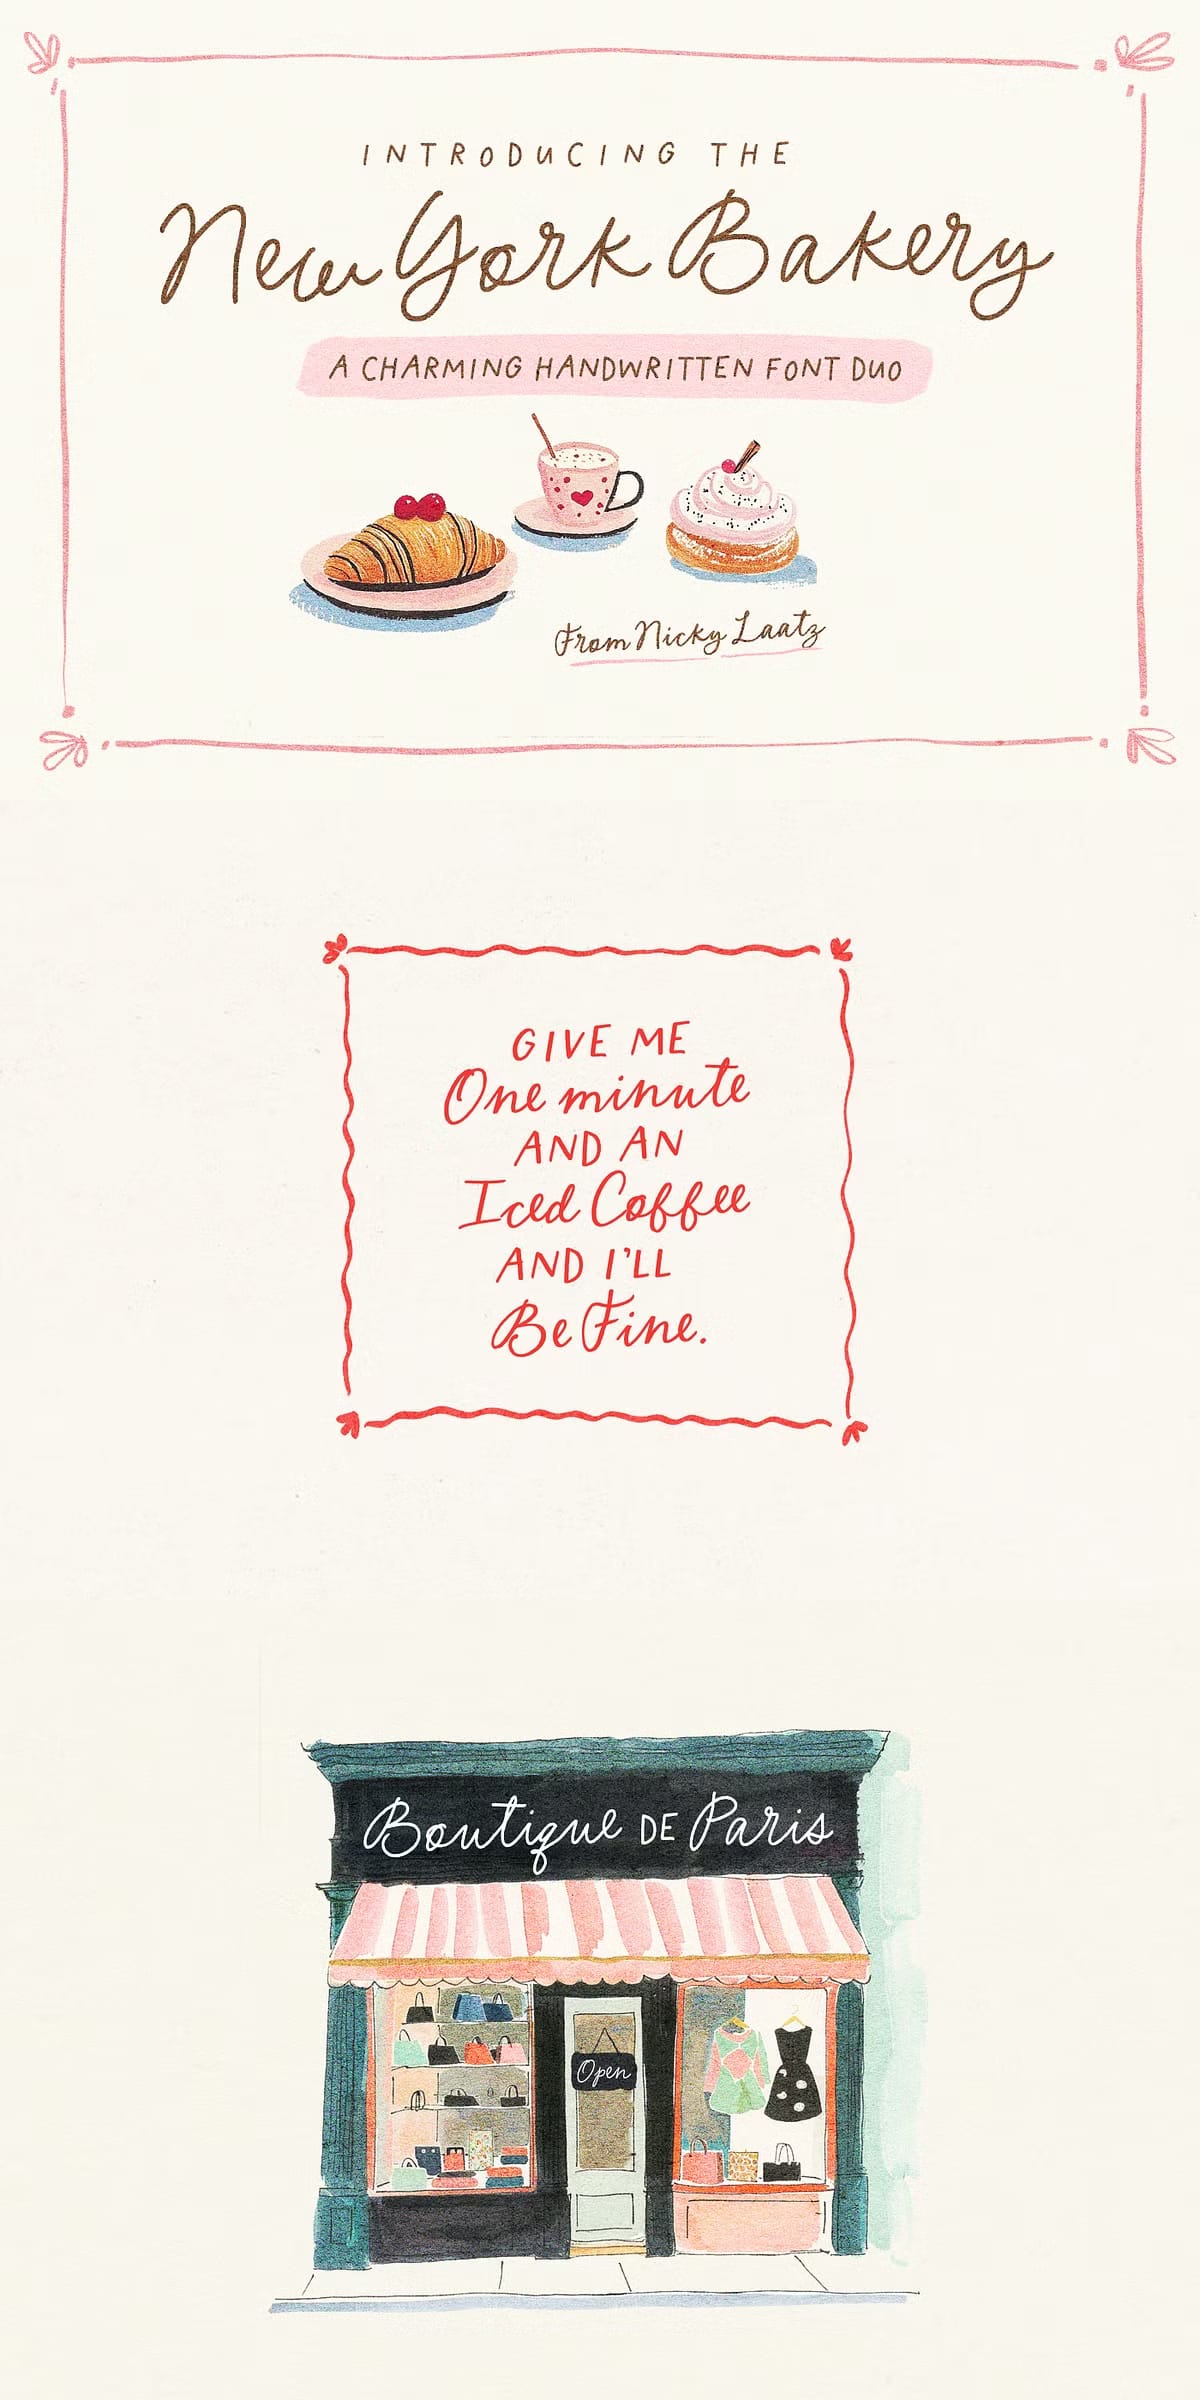 INTRODUCING THE
New York Bakery
A CHARMING HANDWRITTEN FONT DUO
From Nicky Laatz
GIVE ME
One minute
AND AN
Iced Coffee
AND I'LL
Be Fine.
Boutique DE Paris
Open